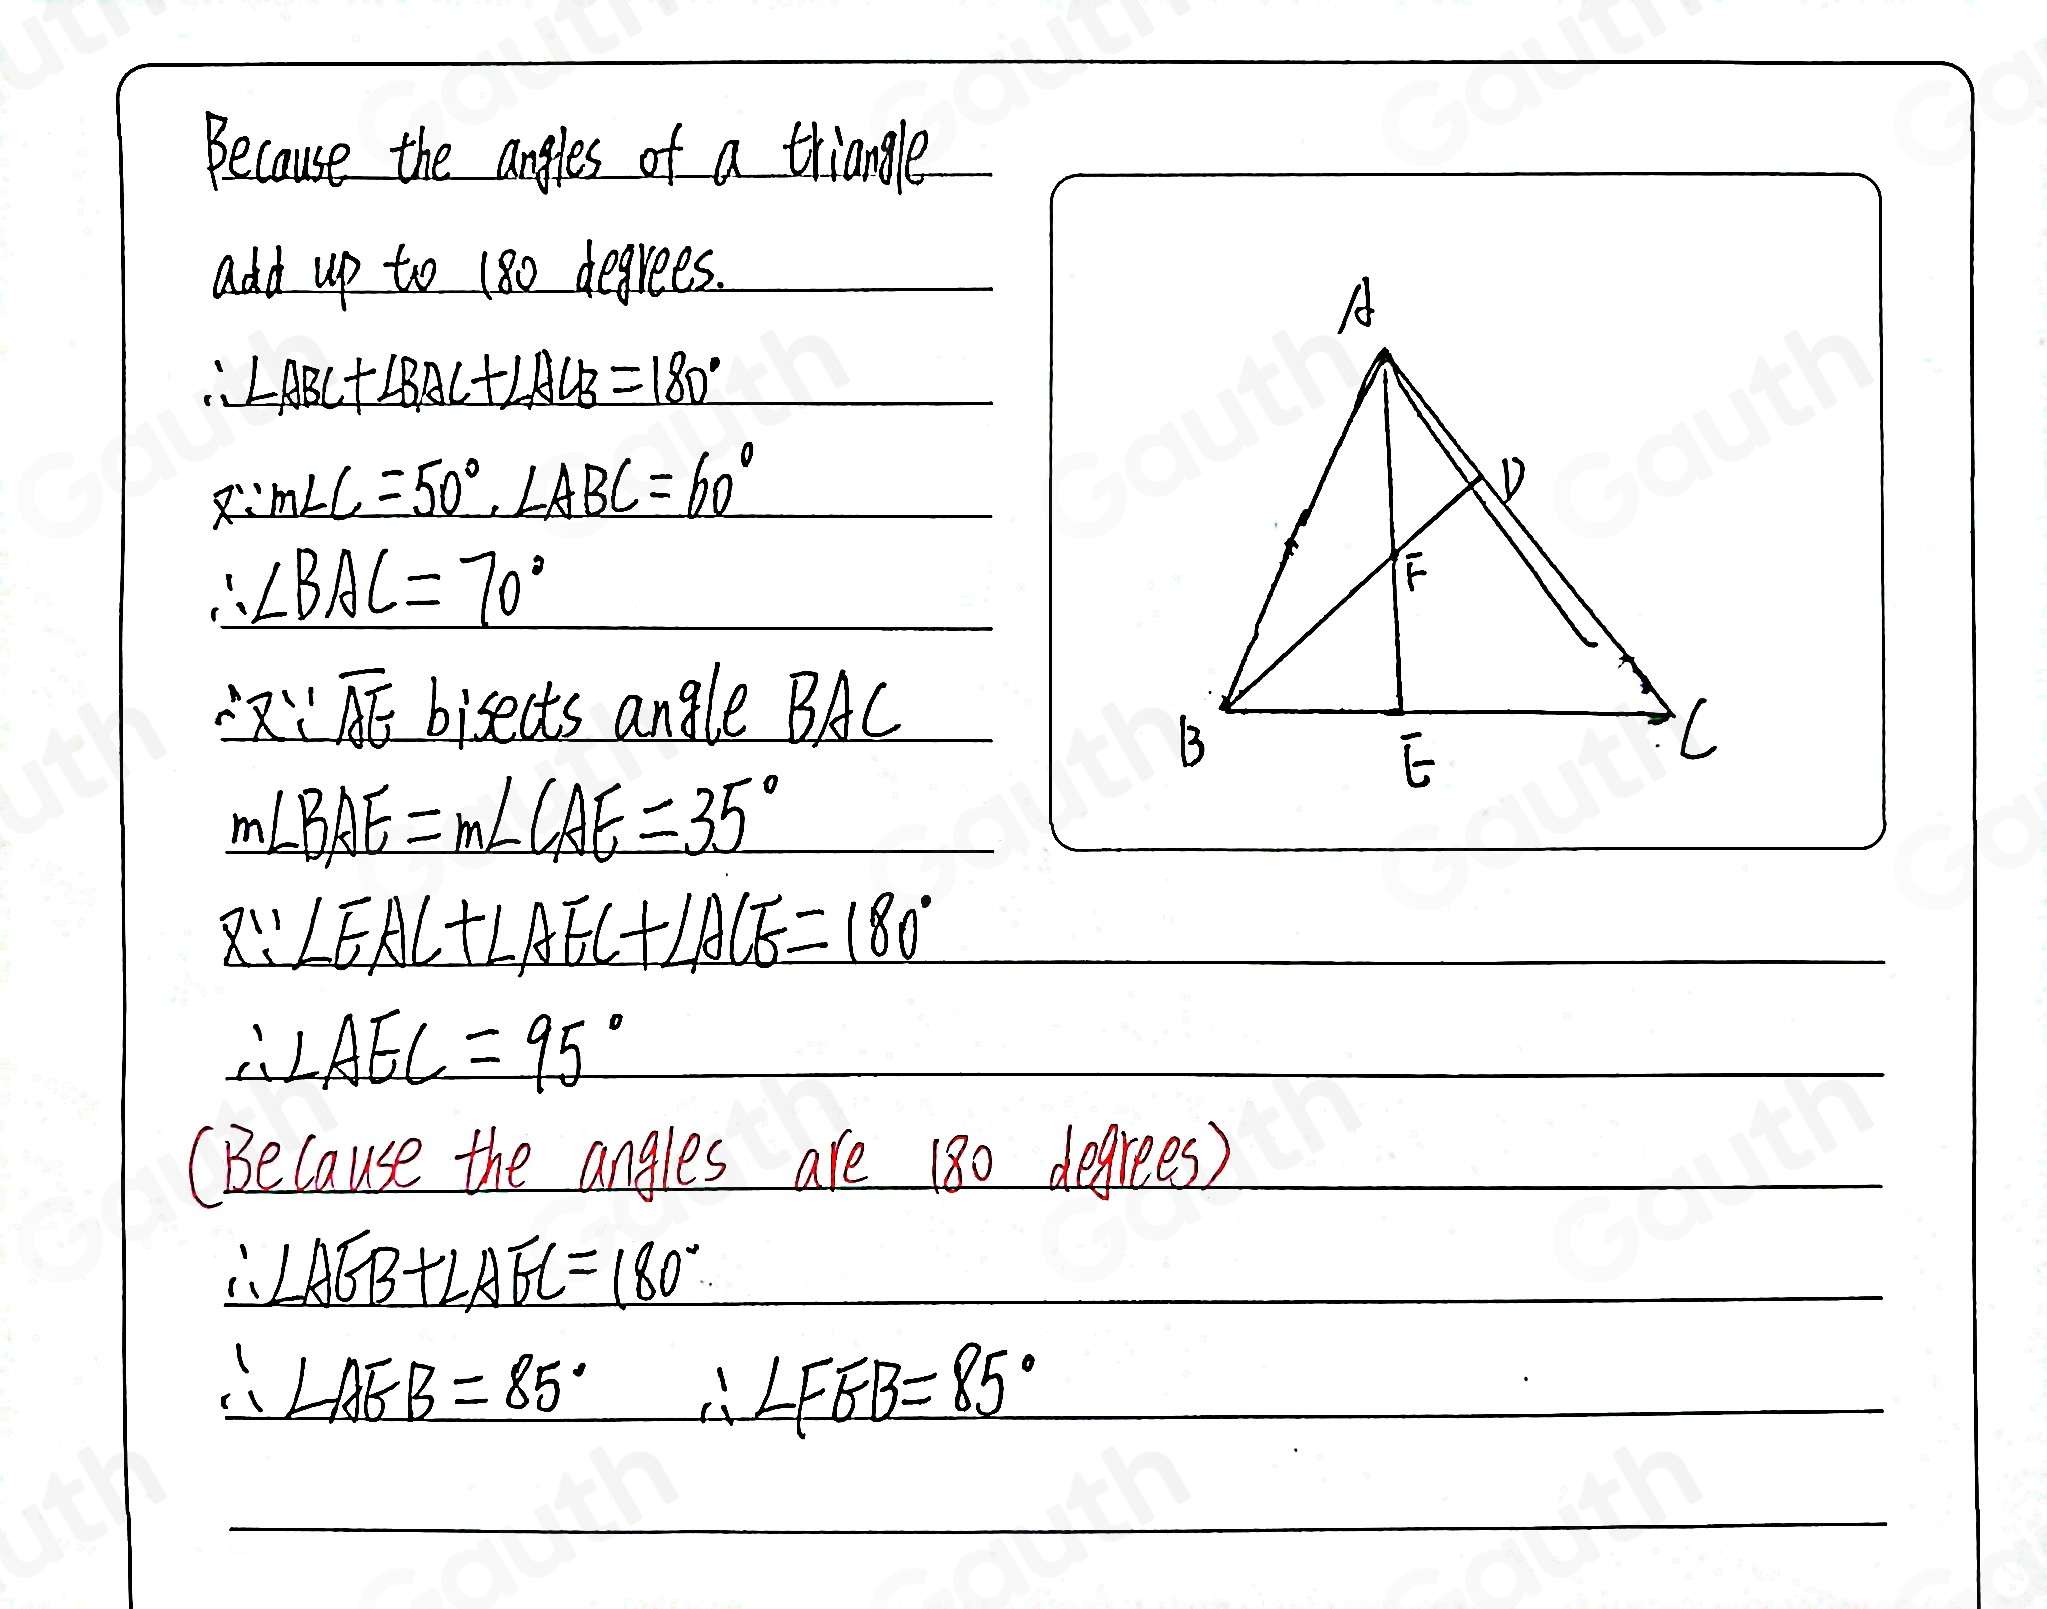 Because the angles of a triangle
add up to 180 degrees.
∴∠ABC+∠BAC+∠ACB=180°
又∵m∠C=50°,∠ABC=60°
∴∠BAC=70°
∴又∵AE bisects angle BAC
m∠BAE=m∠CAE=35°
又∵∠EAC+∠AEC+∠ACE=180°
∴∠AEC=95°
(Because the angles are 180 degrees)
∴∠AEB+∠AEC=180°
∴∠AEB=85° ∴∠FEB=85°
A
D
F
B
E
C
Gauth